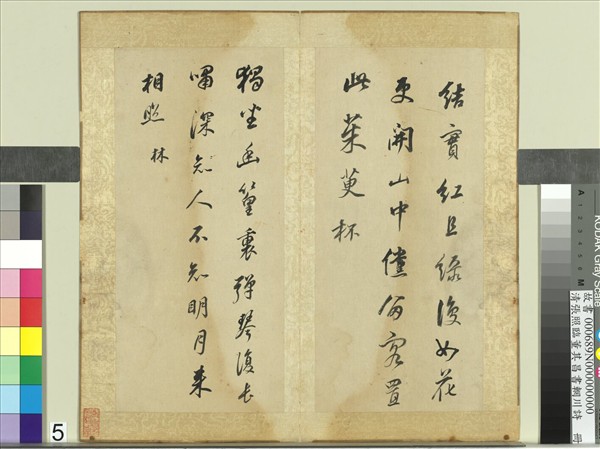 結實紅且綠復如花
更開山中儻留客置
此茱萸杯
獨坐幽篁裏彈琴復長
嘯深知人不知明月來
相照 林
5
KODAK Gray Scale
A 1 2 3 4 5 6 M
故書 000689N000000000
清張照臨董其昌書輞川詩 冊